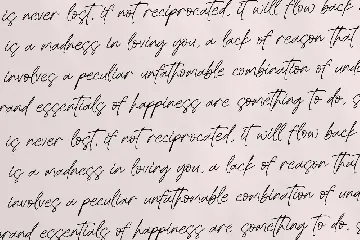 is never lost, if not reciprocated, it will flow back
is a madness in loving you, a lack of reason that
involves a peculiar unfathomable combination of
rand essentials of happiness are something to do, s
is never lost, if not reciprocated, it will flow back
is a madness in loving you, a lack of reason that
involves a peculiar unfathomable combination of
rand essentials of happiness are something to do,